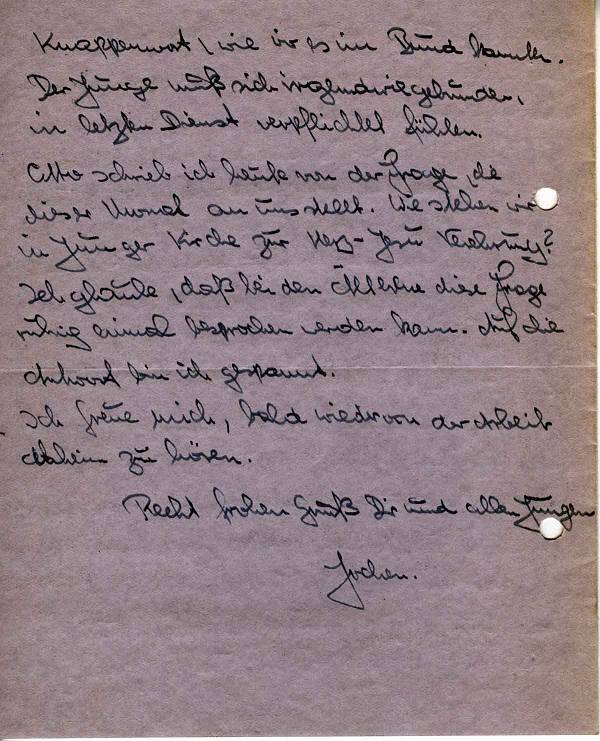 Knappenwort, wie wir es im Bund kannten.
Der Junge muß sich irgendwie gebunden,
in letzten Dienst verpflichtet fühlen.
Otto schrieb ich heute von der Frage, die
dieser Monat an uns stellt. Wie stehen wir
in Junger Kirche zur Herz-Jesu Verehrung?
Ich glaube, daß bei den Älteren diese Frage
ruhig einmal besprochen werden kann. Auf die
Antwort bin ich gespannt.
Ich freue mich, bald wieder von der Arbeit
daheim zu hören.
Recht frohen Gruß Dir und allen Jungen
Jochen.